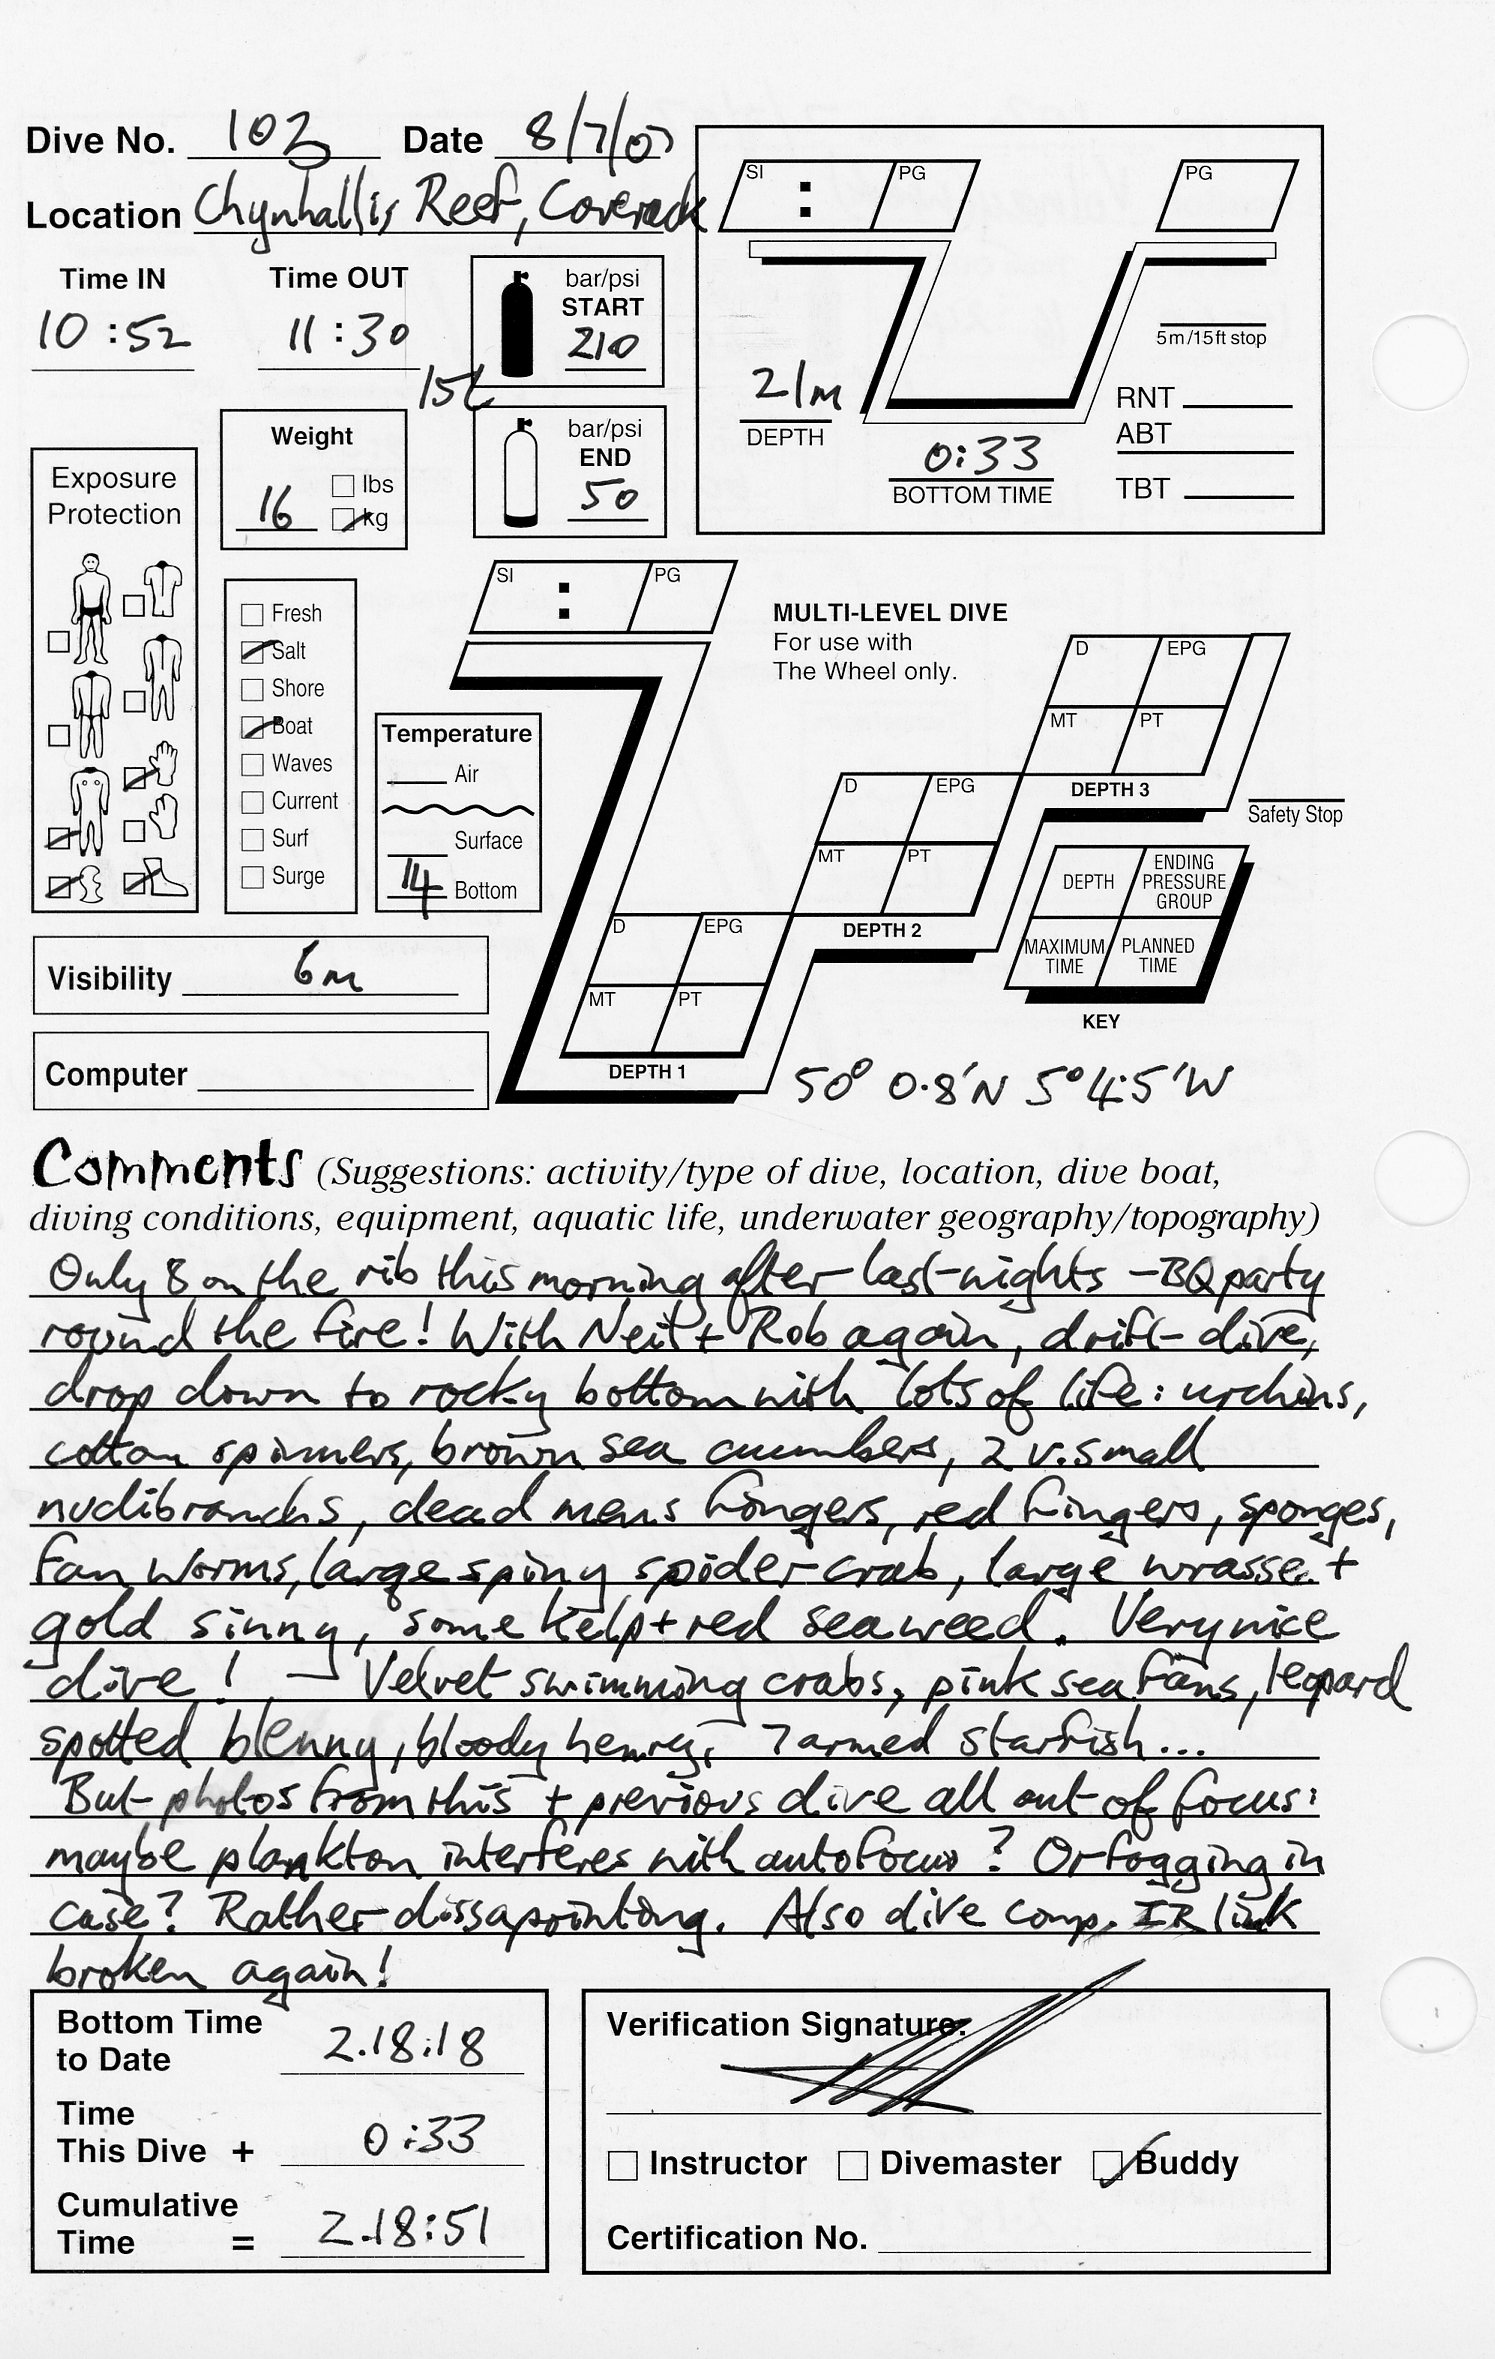 Dive No. 103 Date 8/7/07
Location Chynhallis Reef, Coverack
Time IN
10:52
Time OUT
11:30
15L
bar/psi
START
210
bar/psi
END
50
Weight
16
lbs
kg
Exposure
Protection
Fresh
Salt
Shore
Boat
Waves
Current
Surf
Surge
Temperature
Air
Surface
14 Bottom
Visibility 6m
Computer
SI : PG
PG
5m/15ft stop
21m
DEPTH
0:33
BOTTOM TIME
RNT
ABT
TBT
SI : PG
MULTI-LEVEL DIVE
For use with
The Wheel only.
D EPG
MT PT
DEPTH 1
D EPG
MT PT
DEPTH 2
D EPG
MT PT
DEPTH 3
Safety Stop
DEPTH
ENDING
PRESSURE
GROUP
MAXIMUM
TIME
PLANNED
TIME
KEY
50° 0.8'N 5° 4.5'W
Comments (Suggestions: activity/type of dive, location, dive boat,
diving conditions, equipment, aquatic life, underwater geography/topography)
Only 8 on the rib this morning after last nights - BQ party
round the fire! With Neil + Rob again, drift dive,
drop down to rocky bottom with lots of life: urchins,
cotton spinners, brown sea cucumbers, 2 v. small
nudibranchs, dead mens fingers, red fingers, sponges,
fan worms, large spiny spider crab, large wrasse +
gold sinny, some kelp + red seaweed. Very nice
dive! - Velvet swimming crabs, pink sea fans, leopard
spotted blenny, bloody henry, 7 armed starfish...
But photos from this + previous dive all out of focus:
maybe plankton interferes with autofocus? Or fogging in
case? Rather dissapointing. Also dive comp. IR link
broken again!
Bottom Time
to Date 2.18:18
Time
This Dive + 0:33
Cumulative
Time = 2.18:51
Verification Signature:
Instructor Divemaster Buddy
Certification No.